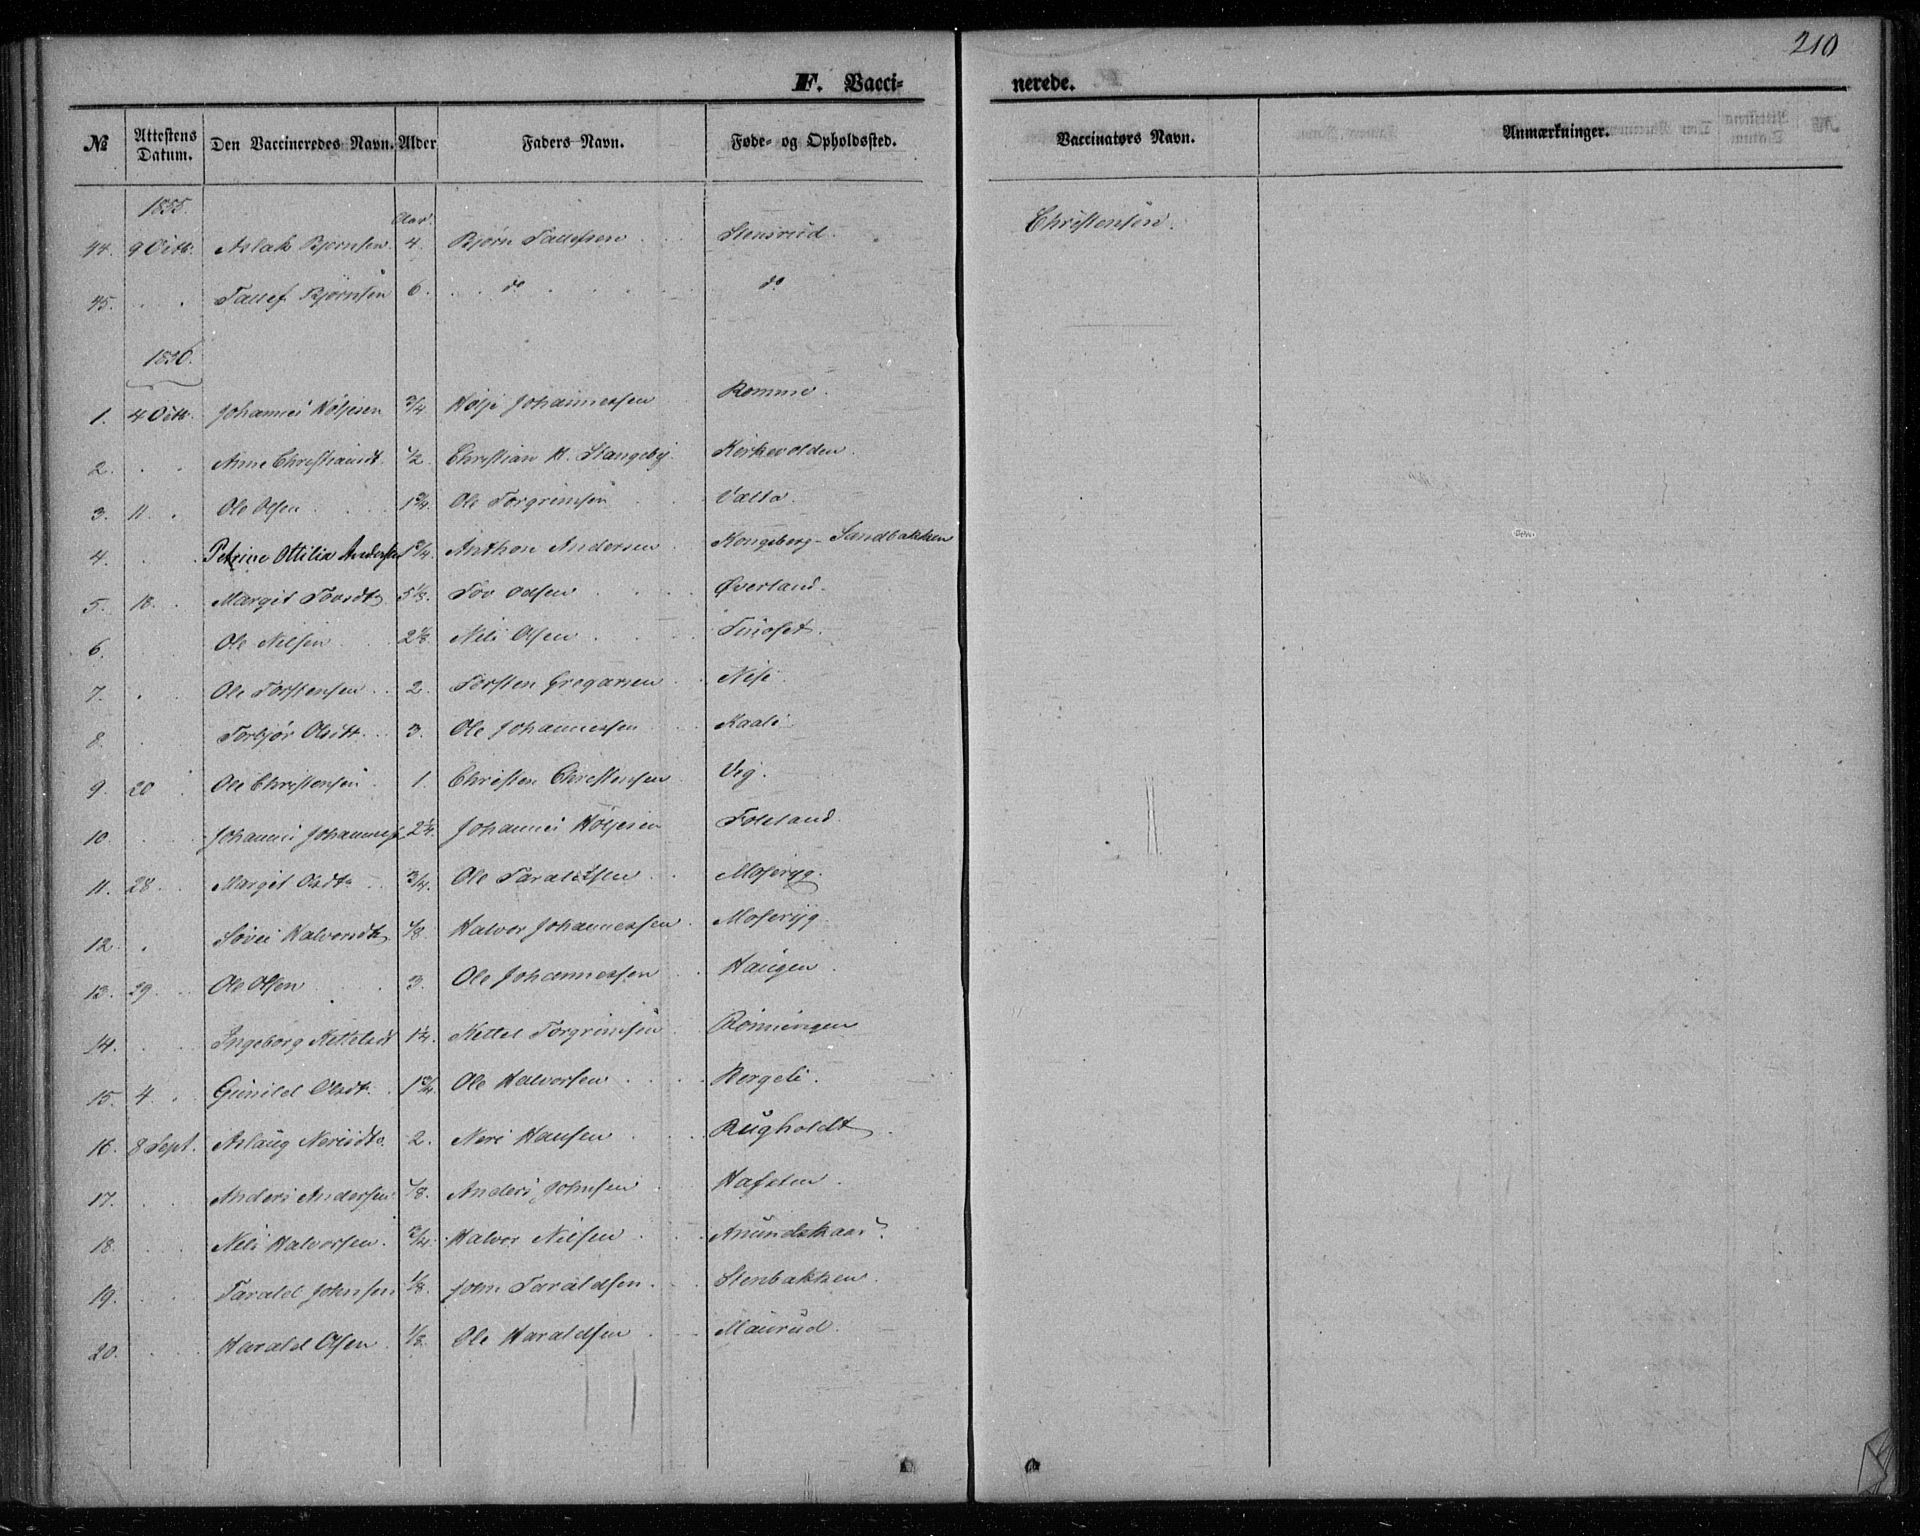 210
F. Vacci-
nerede.
№ Attestens Datum. Den Vaccineredes Navn. Alder Faders Navn. Føde- og Opholdssted. Vaccinators Navn. Anmærkninger.
1855.
Aar.
44. 9 Octb. Aslak Bjørnsen 4. Bjørn Tallefsen Stensrud. Christensen.
45. . . Tallef Bjørnsen 6. . . do . . . . do
1856.
1. 4 Octb. Johannes Høljesen 3/4 Hølje Johannessen Romme.
2. . . Anne Christiansdt. 1/2. Christian H. Slangeby. Kirkevolden.
3. 11. . Ole Olsen 1 3/4. Ole Torgrimsen
4. . . Petrine Ottilia Andersdt 1 3/4. Anthon Andersen Kongsberg - Sandbakken
5. 18. . Margit Tovsdtr 5 1/8. Tov Olsen Øverland.
6. Ole Nilsen 2 1/8. Nils Olsen Tinoset.
7. . Ole Torstensen 2. Torsten Gregarsen
8. . Torbjør Olsdtr. 3. Ole Johannessen Kaali.
9. 20 . Ole Christensen 1. Christen Christensen Vig.
10. . . Johannes Johannesf. 2 1/4. Johannes Høljesen Foleland.
11. 28. . Margit Olsdtr 3/4. Ole Taraldsen Moseryg.
12. . Søvei Halvorsdtr 1/8. Halvor Johannessen Moseryg.
13. 29. . Ole Olsen 3. Ole Johannessen Haugen.
14. . Ingeborg Kittelsdt 1 1/4. Kittel Torgrimsen Rönningen
15. 4. . Gunild Olsdtr. 1 3/4. Ole Halvorsen Borgeli.
16. 8 Sept. Aslaug Nerisdtr. 2. Neri Hansen Rugholdt.
17. . . Anders Andersen 1/8. Anders Johnsen Hafsten.
18. . . Nils Halvorsen. 3/4. Halvor Nilsen Anundskaas.
19. . . Tarald Johnsen 1/8. John Taraldsen. Stenbakken.
20. . . Harald Olsen 1/8. Ole Haraldsen Maurud.